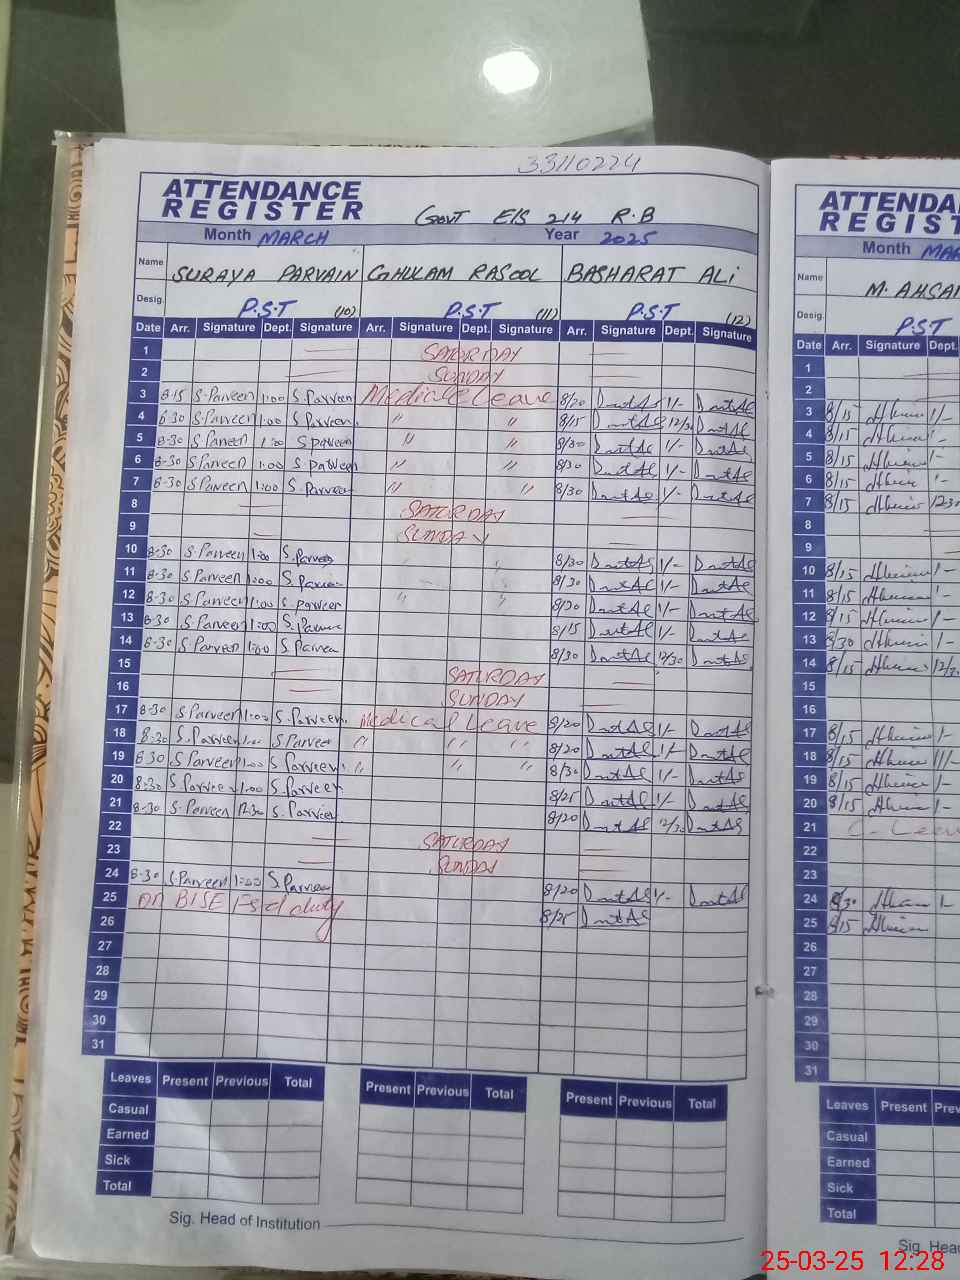 33110224
ATTENDANCE REGISTER
GOVT E/S 214 R.B
Month MARCH Year 2025
Name SURAYA PARVAIN GHULAM RASOOL BASHARAT ALi
Desig. P.S.T (10) P.S.T (11) P.S.T (12)
Date Arr. Signature Dept. Signature Arr. Signature Dept. Signature Arr. Signature Dept. Signature
1 SATURDAY
2 SUNDAY
3 8-15 S.Parveen 1:00 S.Parveen Medical Leave 8/20 1/-
4 8-30 S.Parveen 1:00 S.Parveen " " 8/15 12/30
5 8-30 S.Parveen 1:00 S.parveen " " 8/30 1/-
6 8-30 S.Parveen 1:00 S.parveen " " 8/30 1/-
7 8-30 S.Parveen 1:00 S.Parveen " " 8/30 1/-
8 SATURDAY
9 SUNDAY
10 8-30 S.Parveen 1:00 S.Parveen " 8/30 1/-
11 8-30 S.Parveen 1:00 S.Parveen " " 8/30 1/-
12 8-30 S.Parveen 1:00 S.parveen " " 8/20 1/-
13 8-30 S.Parveen 1:00 S.Parveen 8/15 1/-
14 8-30 S.Parveen 1:00 S.Parveen 8/30 12/30
15 SATURDAY
16 SUNDAY
17 8-30 S.Parveen 1:00 S.Parveen Medical Leave 8/20 1/-
18 8-30 S.Parveen 1:00 S.Parveen " " " 8/20 1/-
19 8-30 S.Parveen 1:00 S.Parveen " " " 8/30 1/-
20 8-30 S.Parveen 1:00 S.Parveen 8/25 1/-
21 8-30 S.Parveen 12:30 S.Parveen 8/20 12/30
22 SATURDAY
23 SUNDAY
24 8-30 S.Parveen 1:00 S.Parveen 8/20 1/-
25 on BISE Fsd duty 8/25
26
27
28
29
30
31
Leaves Present Previous Total Present Previous Total Present Previous Total
Casual
Earned
Sick
Total
Sig. Head of Institution
ATTENDA
REGIST
Month MAR
Name M. AHSA
Desig. P.S.T
Date Arr. Signature Dept.
1
2
3 8/15 1/-
4 8/15
5 8/15 1-
6 8/15 1-
7 8/15 12-30
8
9
10 8/15 1-
11 8/15 1-
12 8/15 1-
13 8/30 1-
14 8/15 12/3
15
16
17 8/15 1-
18 8/15
19 8/15 1-
20 8/15 1-
21 C-Leav
22
23
24 8/30 1-
25 8/15
26
27
28
29
30
31
Leaves Present Prev
Casual
Earned
Sick
Total
Sig. Head
25-03-25 12:28